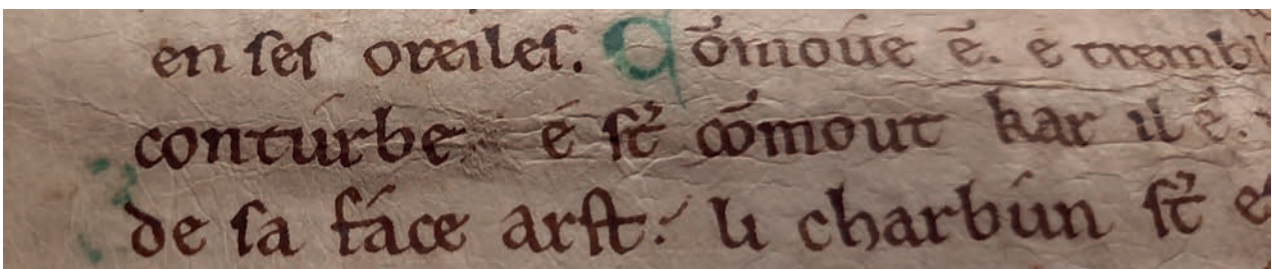 en ses oreiles. Cōmoúe ē. e trembl
conturbe é st̄ cōmout kar il ē.
de sa fáce arst. li charbún st̄ e